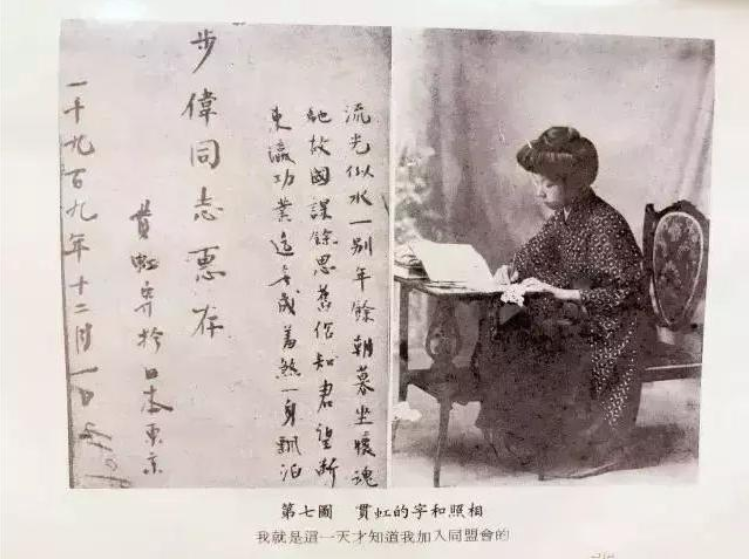 流光似水一別年餘朝暮坐魂
馳故國課餘思舊知君望斷
東瀛功業迄無成羞煞一身飄泊
步偉同志惠存
貫虹寄於日本東京
一千九百九年十二月一日
第七圖 貫虹的字和照相
我就是這一天才知道我加入同盟會的